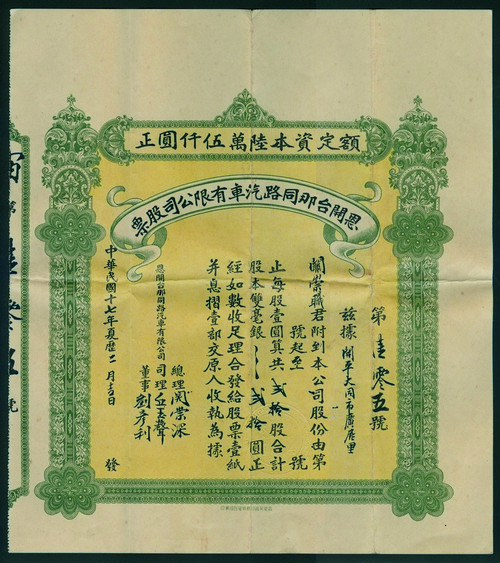 額定資本陸萬伍仟圓正
恩開台那同路汽車有限公司股票
第壹零五號
茲據開平大同市廣居里
關崇職君附到本公司股份由第
號起至　　號
止每股壹圓算共貳拾股合計
股本雙毫銀貳拾圓正
經如數收足理合發給股票壹紙
并息摺壹部交原人收執為據
恩開台那同路汽車有限公司
總理關崇深
司理丘玉聲
董事劉彥利
中華民國十七年夏歷二月吉日　發